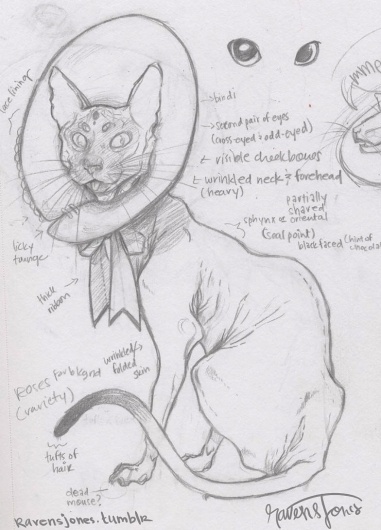 lace lining
bindi
second pair of eyes
(cross-eyed & odd-eyed)
visible cheekbones
wrinkled neck & forehead
(heavy)
partially
shaved
sphynx oriental
(seal point)
black faced (hint of
licky
thick
ribbon
wrinkled/
folded
skin
Roses for bkgnd
(variety)
tufts of
hair
dead
mouse?
ravensjones.tumblr
Ravens Jones